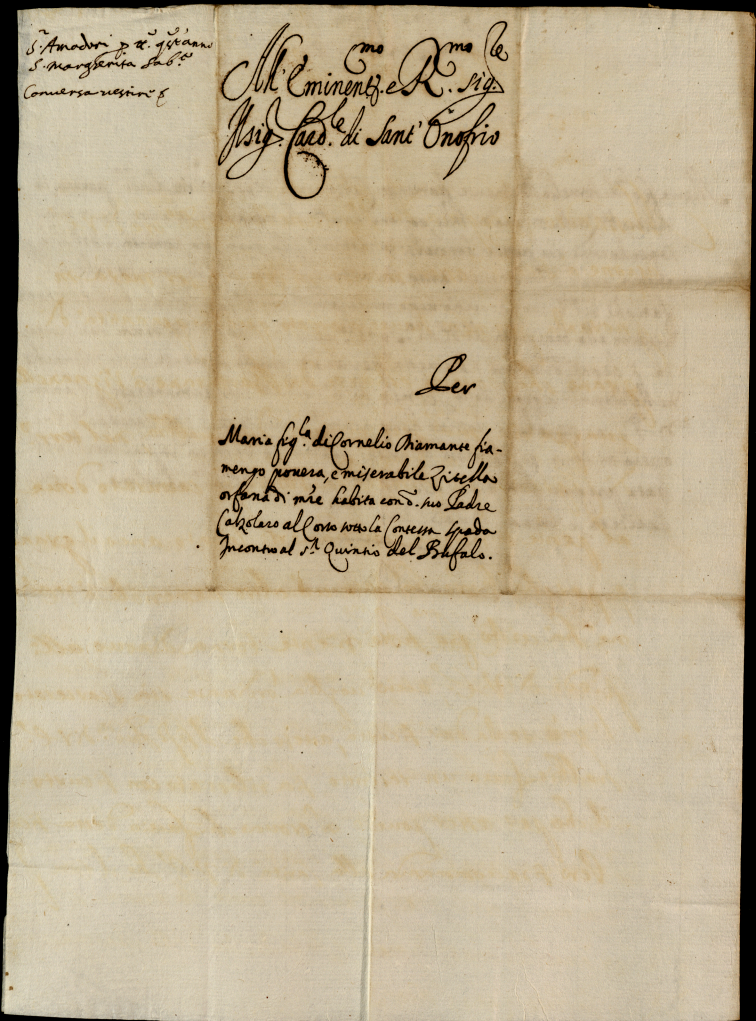 S.r Amadori p
S. Margherita Sab.a
Conversa vestire
All' Eminent.mo e R.mo Sig.re
Il sig. Card.le di Sant' Onofrio
Per
Maria fig.la di Cornelio Diamante fia-
mengo povera, e miserabile Zitella
orfana di m're habita con d. suo Padre
Calzolaro al Corso sotto la Contessa Spada
Incontro al S.r Quintio del Bufalo.